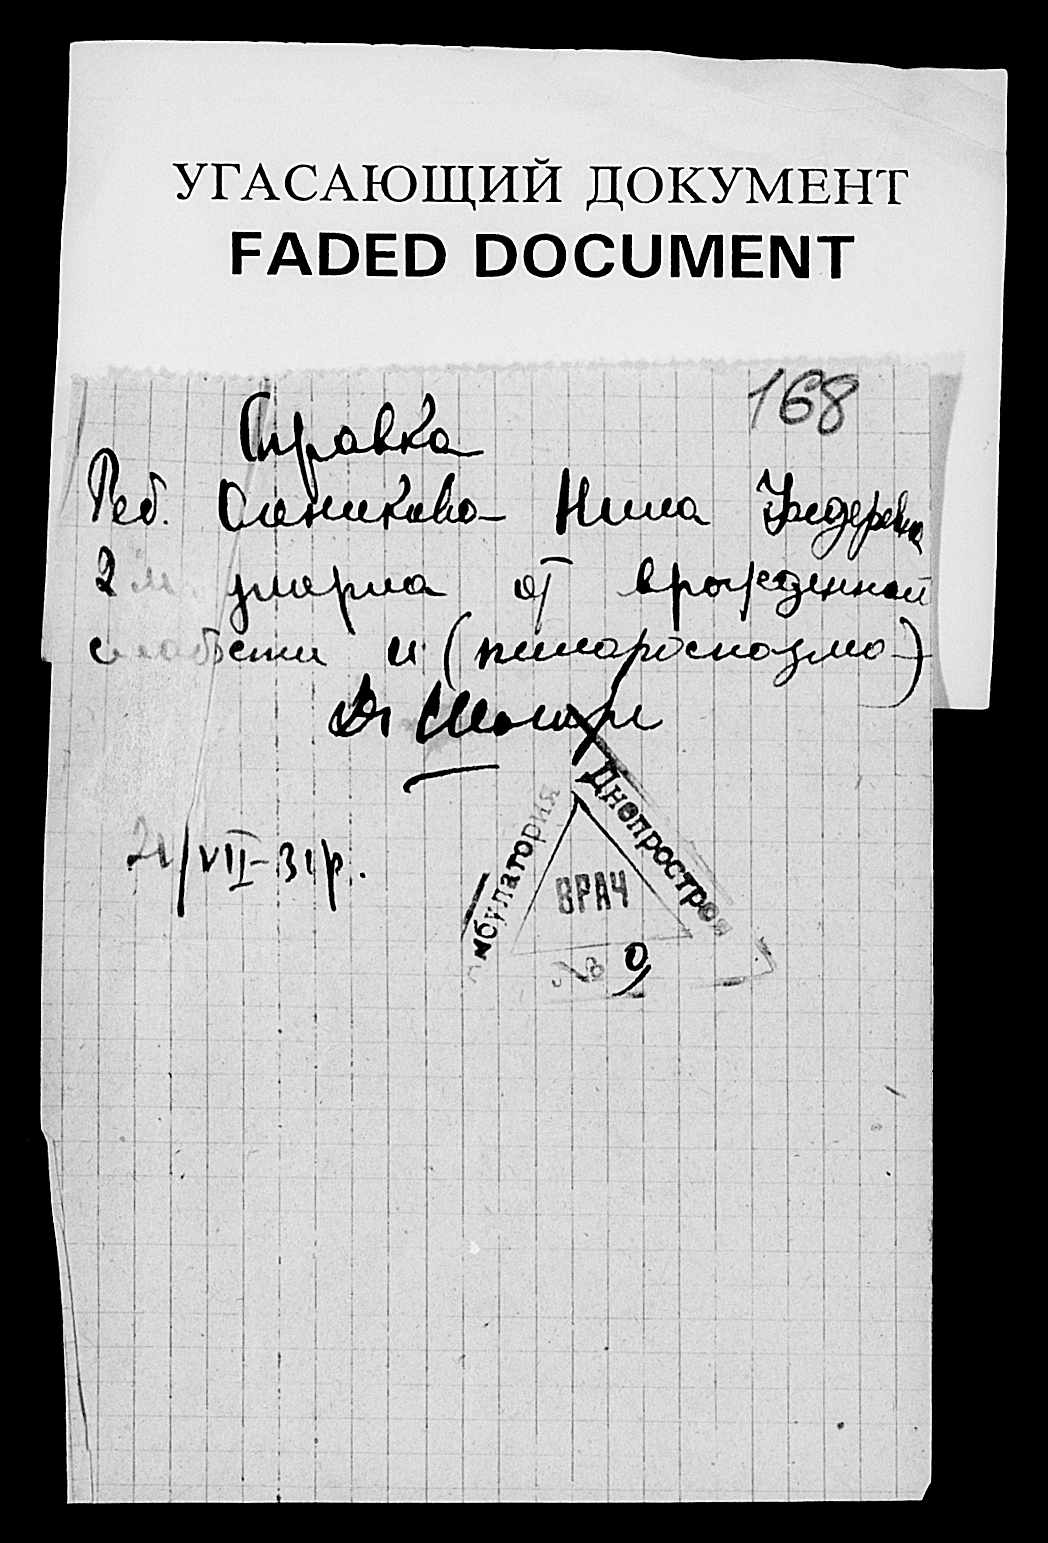 УГАСАЮЩИЙ ДОКУМЕНТ
FADED DOCUMENT
168
Справка
Реб. Олейникова Нина
2 м. умерла от врожденной
слабости и (пилороспазма)
Dr
21/VII-31 р.
Амбулатория Днепростроя
ВРАЧ
№ 9